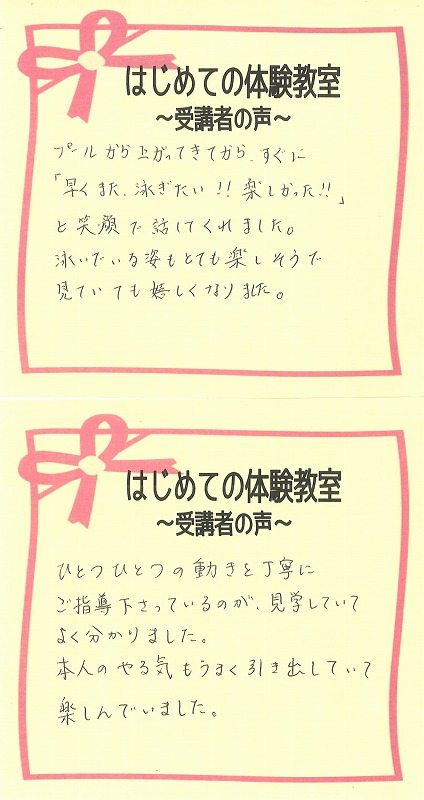 はじめての体験教室
～受講者の声～
プールから上がってきてから、すぐに
「早くまた、泳ぎたい!!楽しかった!!」
と笑顔で話してくれました。
泳いでいる姿もとても楽しそうで
見ていても嬉しくなりました。
はじめての体験教室
～受講者の声～
ひとつひとつの動きを丁寧に
ご指導下さっているのが、見学していて
よく分かりました。
本人のやる気もうまく引き出していて
楽しんでいました。